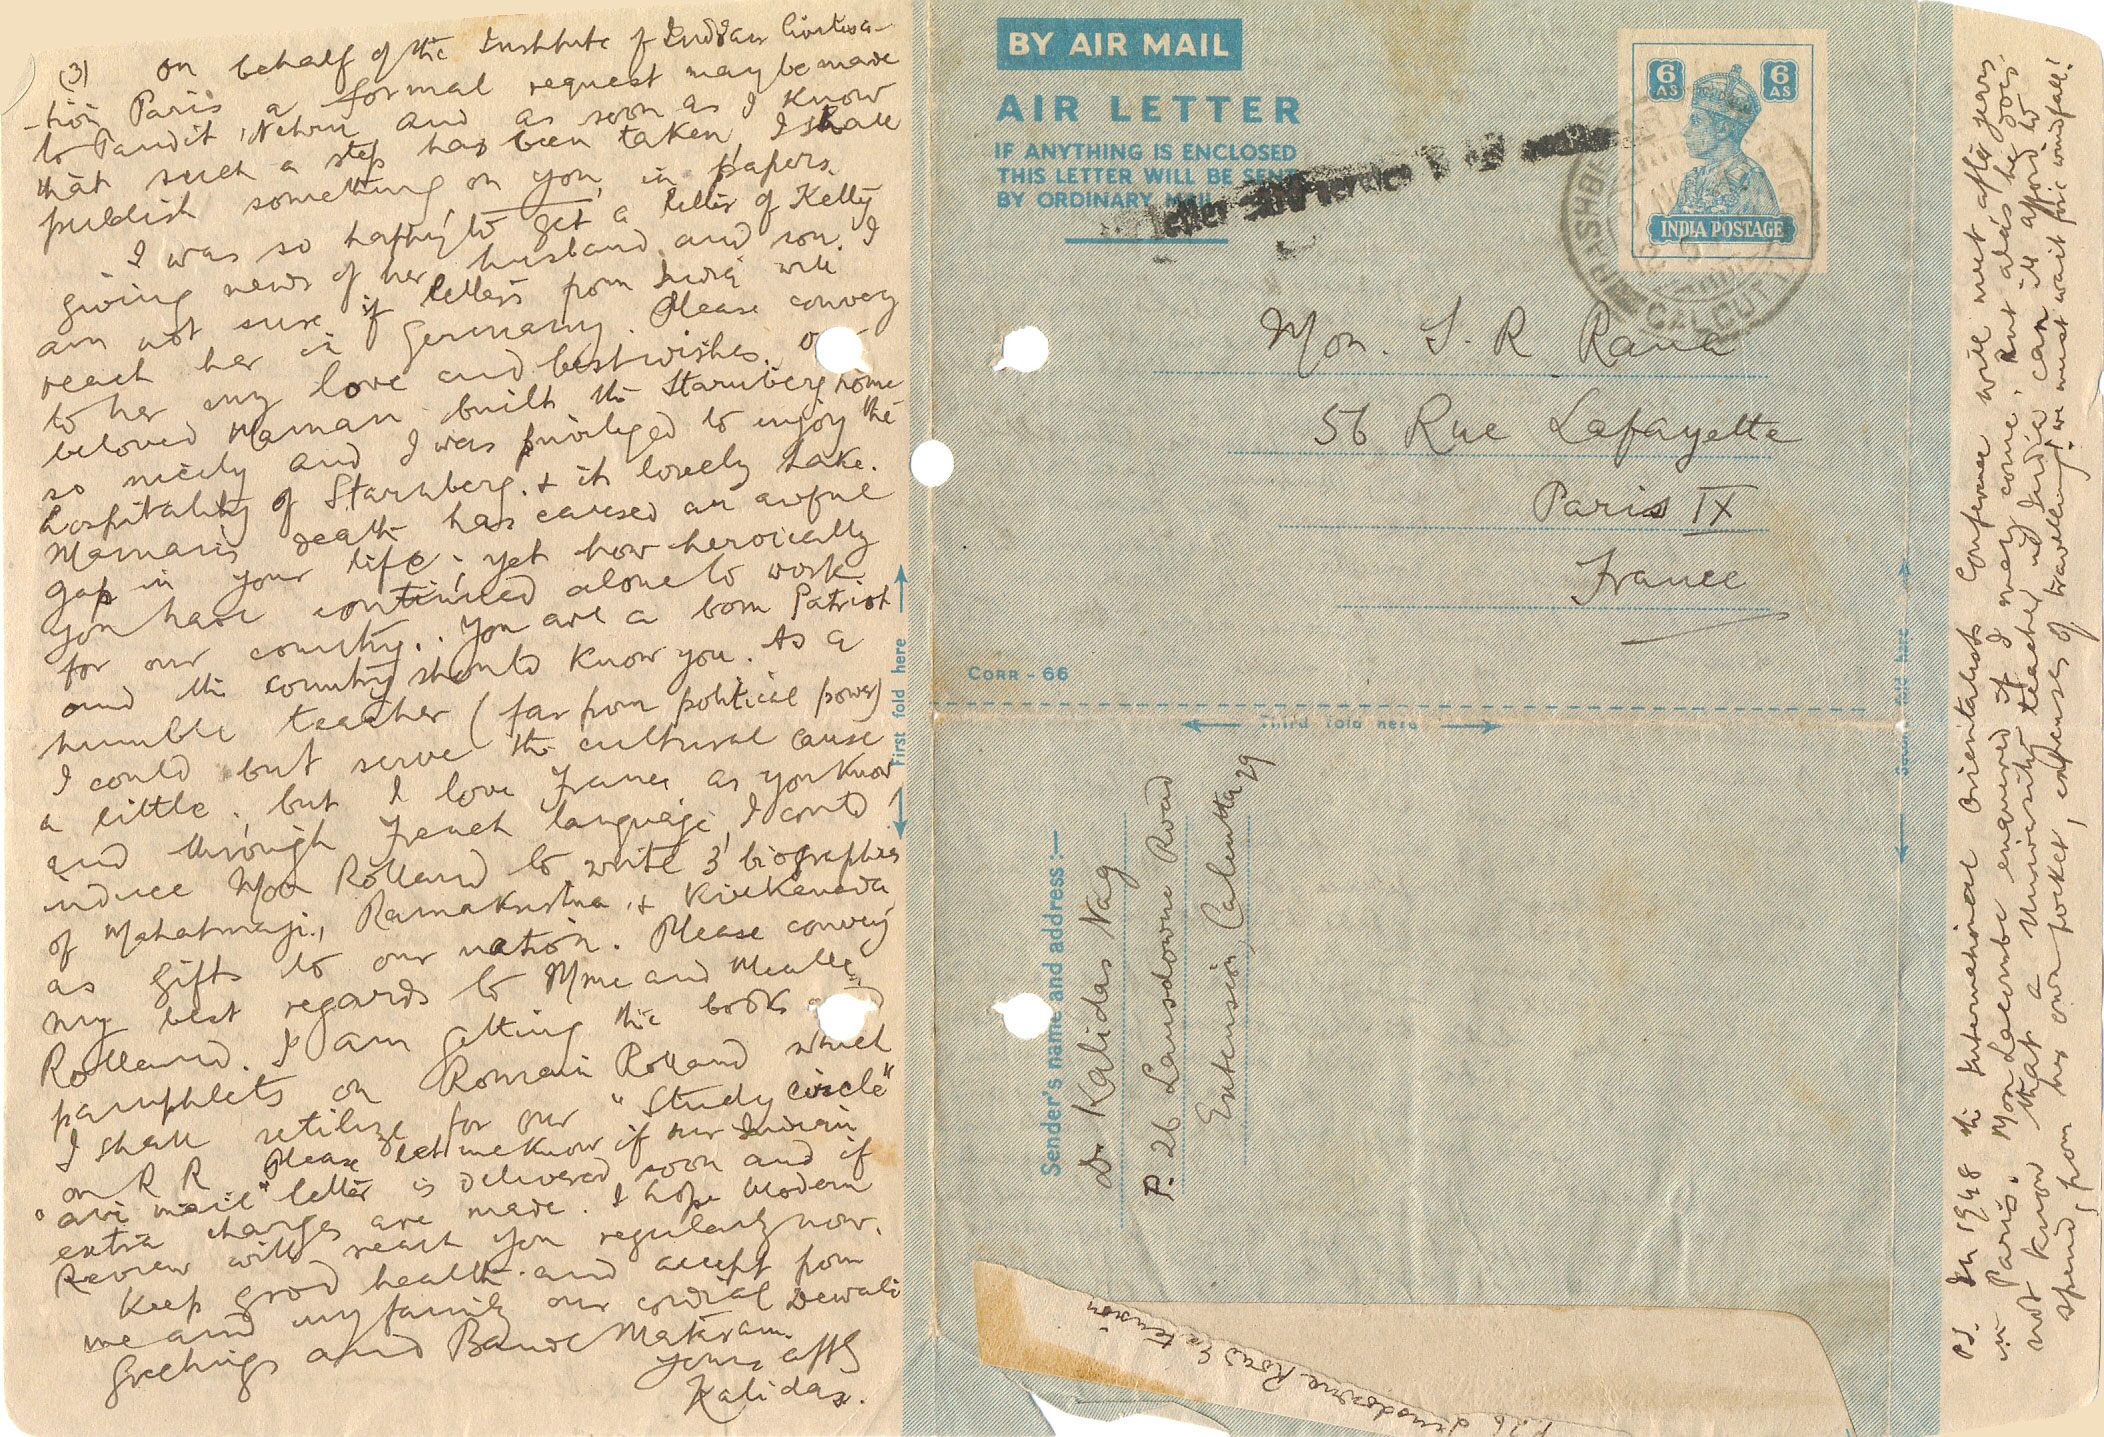 (3) On behalf of the Institute of Indian Civilisa-
-tion Paris a formal request may be made
to Pandit Nehru and as soon as I know
that such a step has been taken, I shall
publish something on you, in papers.
I was so happy to get a letter of Kelly
giving news of her husband and son. I
am not sure if letters from India will
reach her in Germany. Please convey
to her my love and best wishes.
beloved Maman built the Starnberg home
so nicely and I was privileged to enjoy the
hospitality of Starnberg & its lovely Lake.
Maman's death has caused an awful
gap in your life; yet how heroically
you have continued alone to work
for our country. You are a born Patriot
and the country should know you. As a
humble teacher (far from political power)
I could but serve the cultural cause
a little; but I love France as you know
and through French language, I could
induce Mon Rolland to write 3 biographies
of Mahatmaji, Ramakrishna & Vivekananda
as gifts to our nation. Please convey
my best regards to Mme and Mlle
Rolland. I am getting the books and
pamphlets on Romain Rolland which
I shall utilize for our "Study circle"
on R R Please let me know if our Indian
"air mail" letter is delivered soon and if
extra charges are made. I hope Modern
Review will reach you regularly now.
Keep good health and accept from
me and my family our cordial Dewali
Greetings and Bande Mataram.
Yours affly
Kalidas.
First fold here
BY AIR MAIL
AIR LETTER
IF ANYTHING IS ENCLOSED
THIS LETTER WILL BE SENT
BY ORDINARY MAIL
6 AS
6 AS
INDIA POSTAGE
RASHBEHARI
CALCUTTA
Mon. S. R Rana
56 Rue Lafayette
Paris IX
France
CORR - 66
Third fold here
Second fold here
Sender's name and address :—
Dr Kalidas Nag
P. 26 Lansdowne Road
Extension, Calcutta 29
P.26 Lansdowne Road Extension
P.S. In 1948 the International Orientalists Conference will meet after years
in Paris. Mon Lacombe enquired if I may come. But alas he does
not know that a University teacher in India can ill afford to
spend, from his own pocket, expenses of travelling; we must wait for windfall!